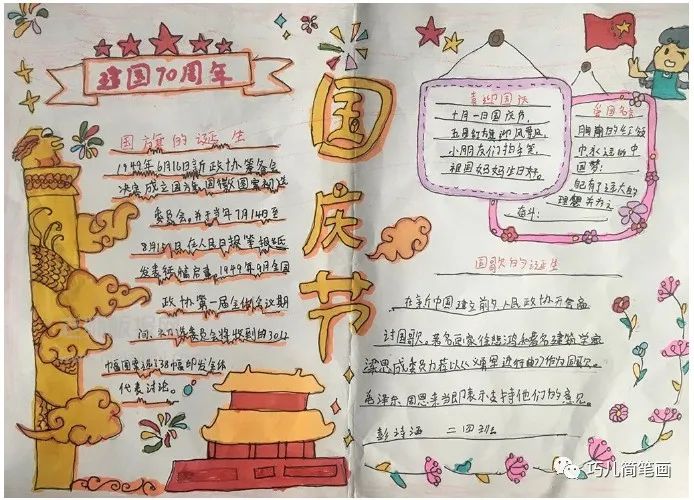 建国70周年
国庆节
国旗的诞生
1949年6月16日新政协筹备会
决定成立国旗国徽图案初选
委员会，并于当年7月14日至
8月15日在人民日报等报纸
发表征稿启事，1949年9月全国
政协第一届全体会议期
间，初选委员会将收到的301
幅图案选38幅印发全体
代表讨论。
喜迎国庆
十月一日国庆节，
五星红旗迎风飘，
小朋友们拍手笑，
祖国妈妈生日好。
爱国名言
胸前的红领
巾永远的中
国梦：
配有了远大的
理想并为之
奋斗：
国歌的诞生
在新中国建立前夕，人民政协开会商
讨国歌。著名画家徐悲鸿和著名建筑学家
梁思成委员力荐以《义勇军进行曲》作为国歌。
毛泽东、周恩来当即表示支持他们的意见。
彭诗海 二四班
巧儿简笔画